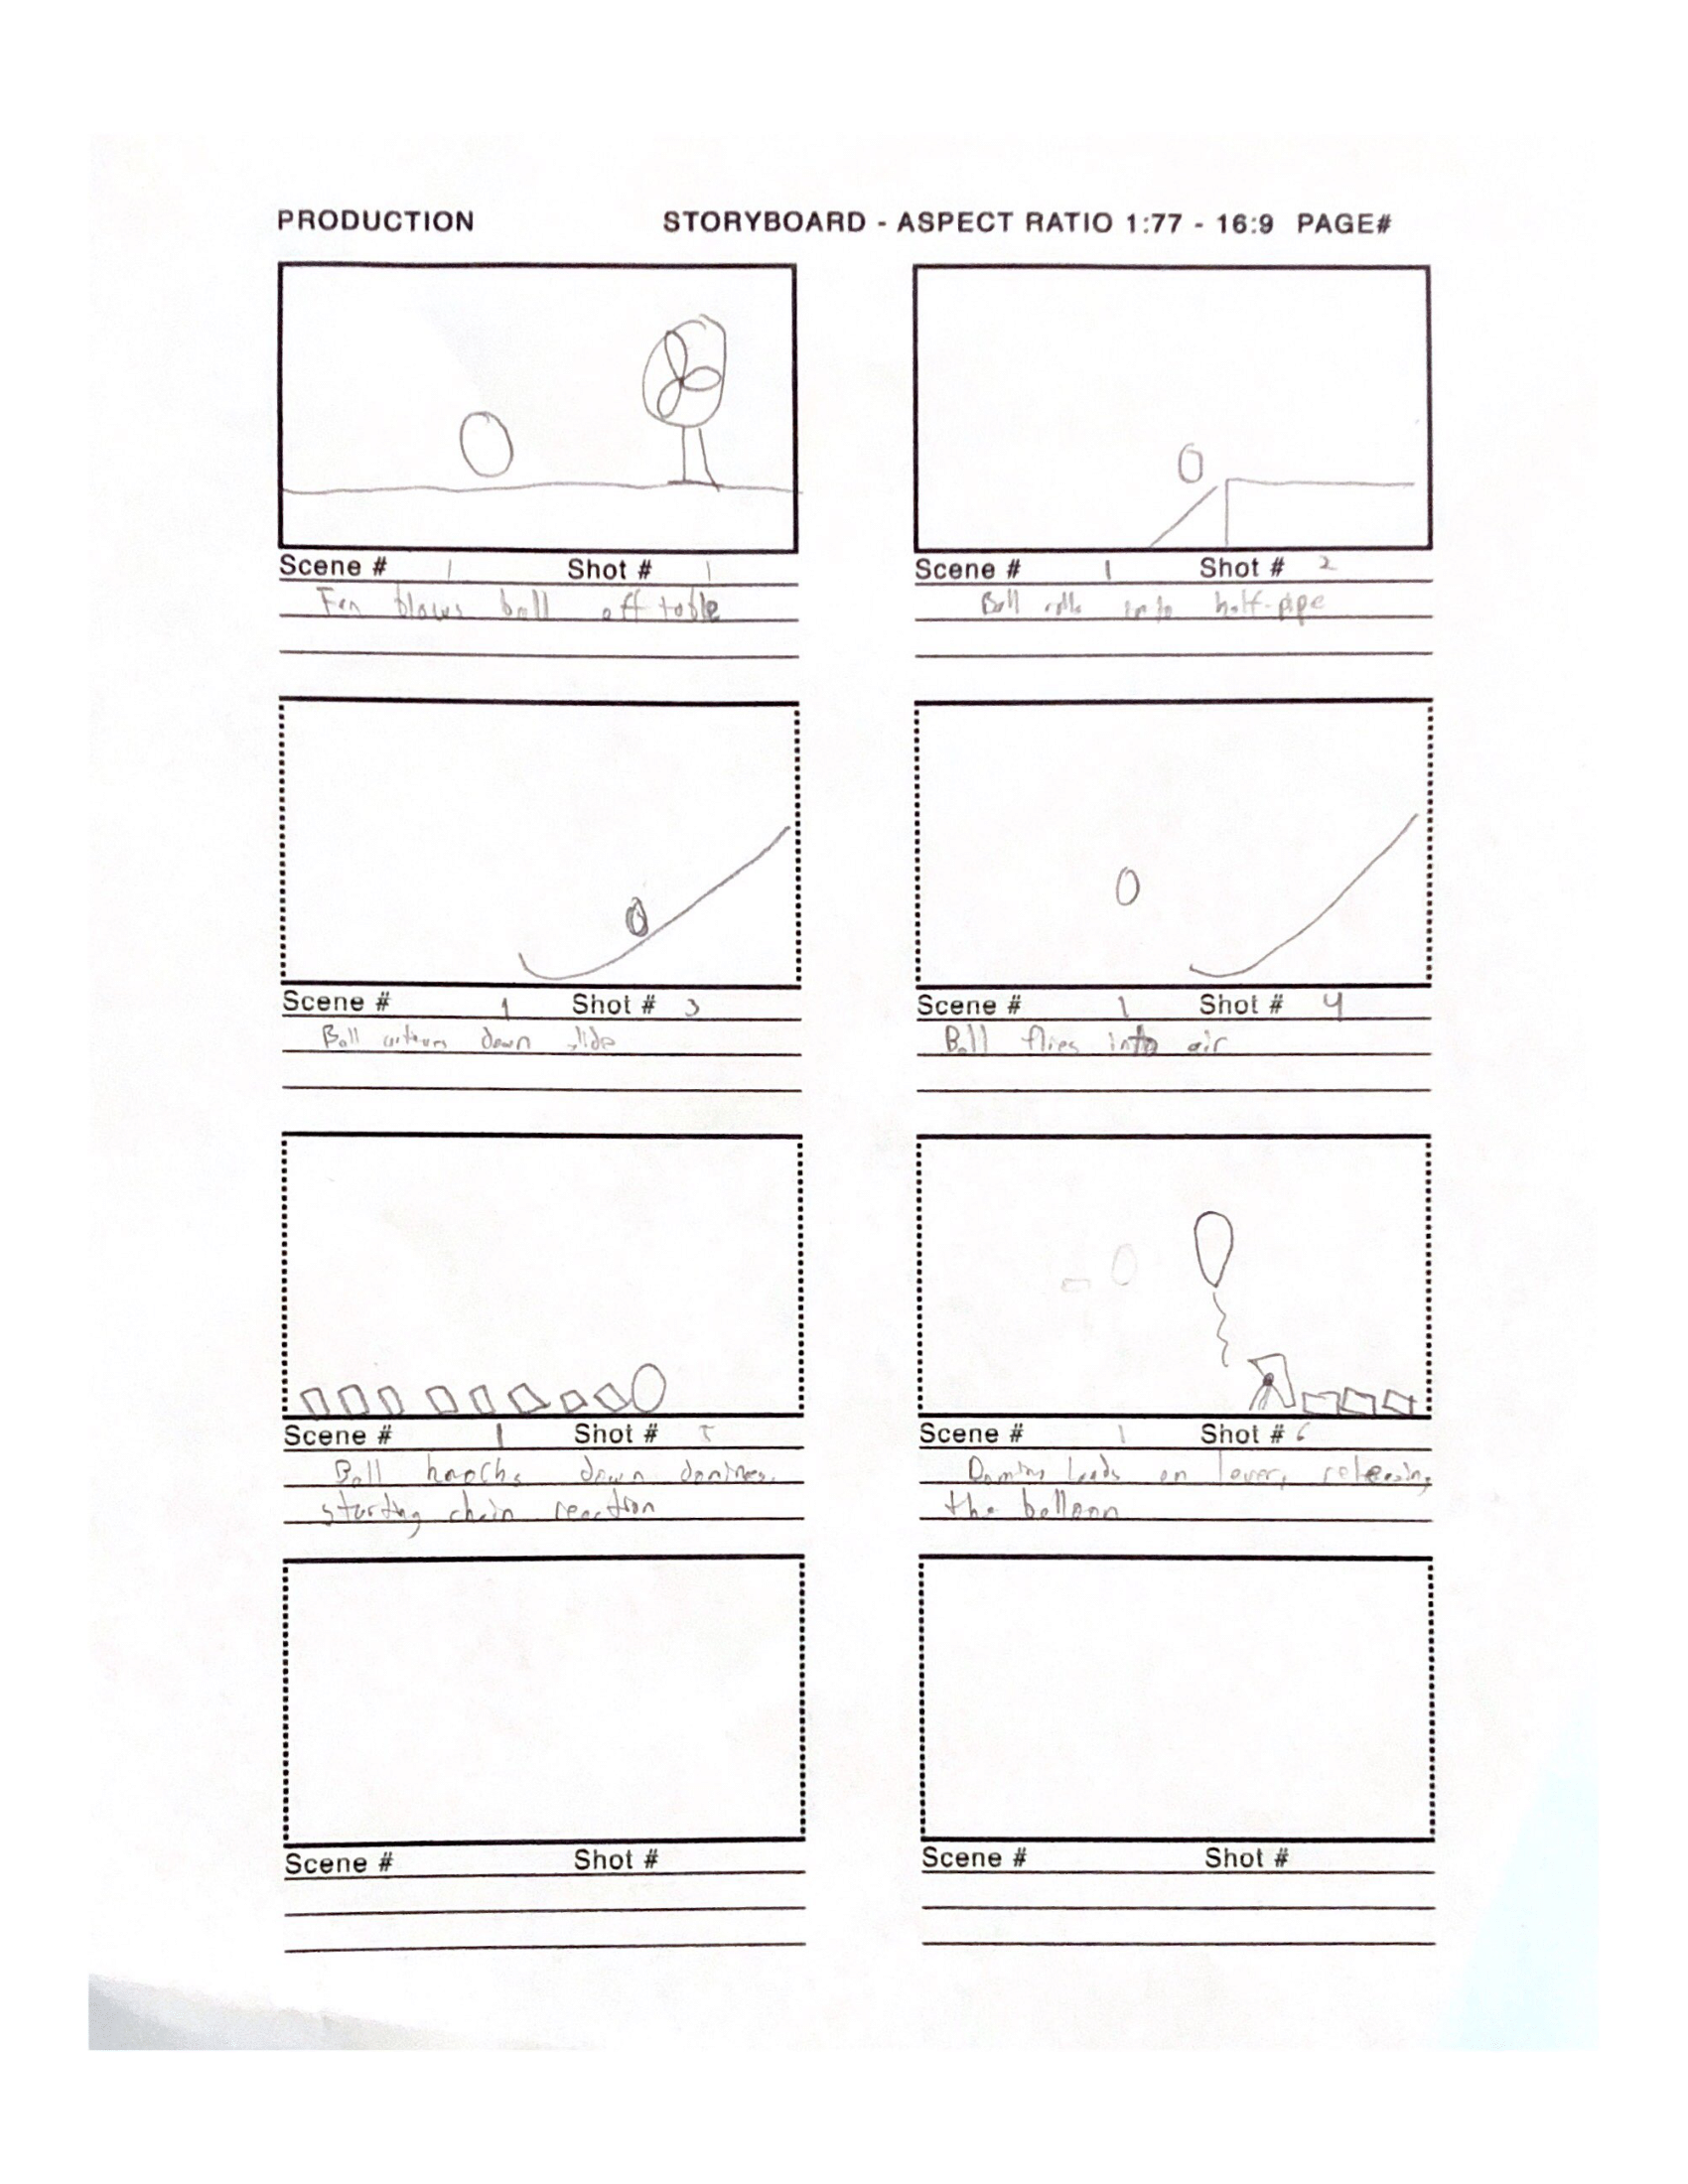 PRODUCTION STORYBOARD - ASPECT RATIO 1:77 - 16:9 PAGE#
Scene # 1 Shot # 1
Fan blows ball off table
Scene # 1 Shot # 2
Ball rolls into half-pipe
Scene # 1 Shot # 3
Ball down slide
Scene # 1 Shot # 4
Ball flies into air
Scene # 1 Shot # 5
Ball knocks down dominoes,
starting chain reaction
Scene # 1 Shot # 6
Domino lands on lever, releasing
the balloon
Scene # Shot #
Scene # Shot #